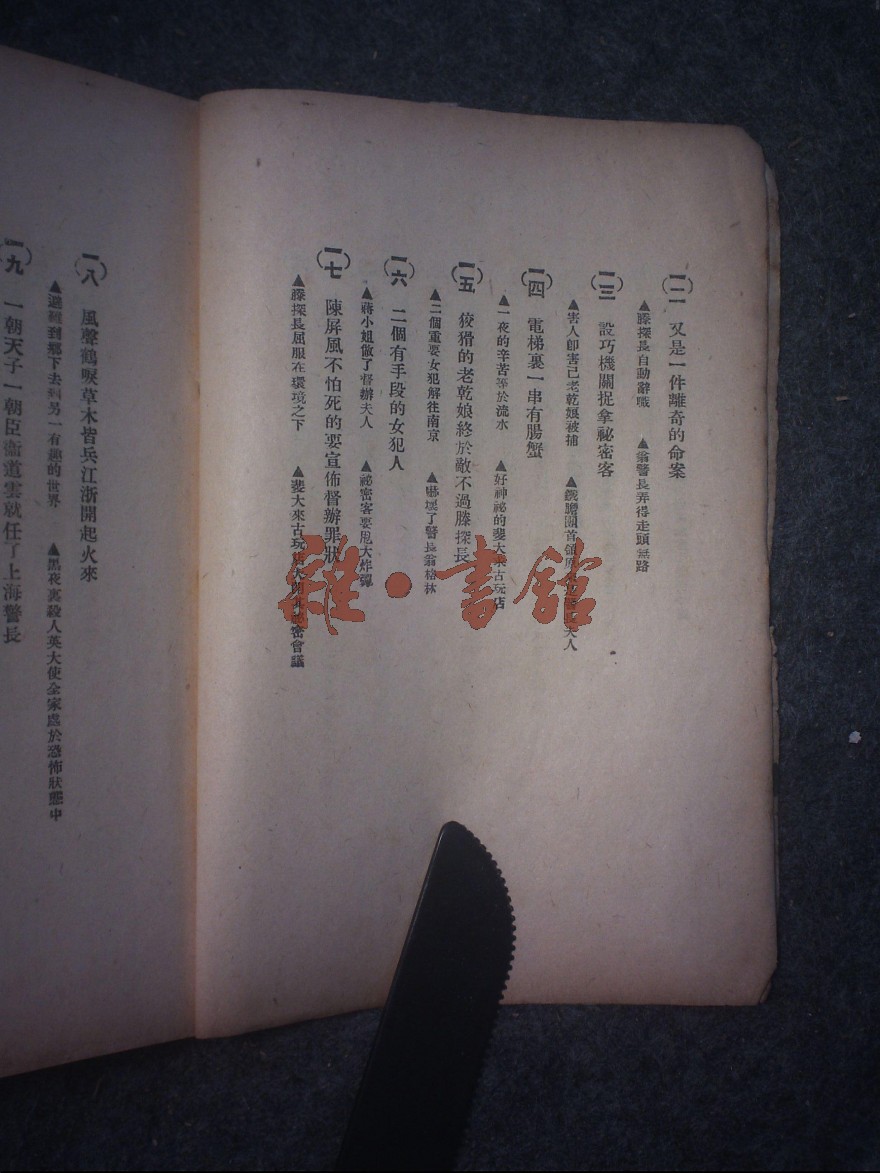 (一二) 又是一件離奇的命案
▲滕探長自動辭職 ▲翁警長弄得走頭無路
(一三) 設巧機關捉拿祕密客
▲害人卽害己老乾娘被捕 ▲鐵膽團首領 夫人
(一四) 電梯裏一串有腸蟹
▲一夜的辛苦等於流水 ▲好神祕的斐大來古玩店
(一五) 狡猾的老乾娘終於敵不過滕探長
▲二個重要女犯解往南京 ▲嚇壞了警長翁格林
(一六) 二個有手段的女犯人
▲蔣小姐做了督辦夫人 ▲祕密客要甩大炸彈
(一七) 陳屏風不怕死的要宣佈督辦罪狀
▲滕探長屈服在環境之下 ▲斐大來古玩店 祕密會議
(一八) 風聲鶴唳草木皆兵江浙開起火來
▲避 到鄉下去 另一有趣的世界 ▲黑夜裏殺人英大使全家處於恐怖狀態中
(一九) 一朝天子一朝臣衞道雲就任了上海警長
雜·書館